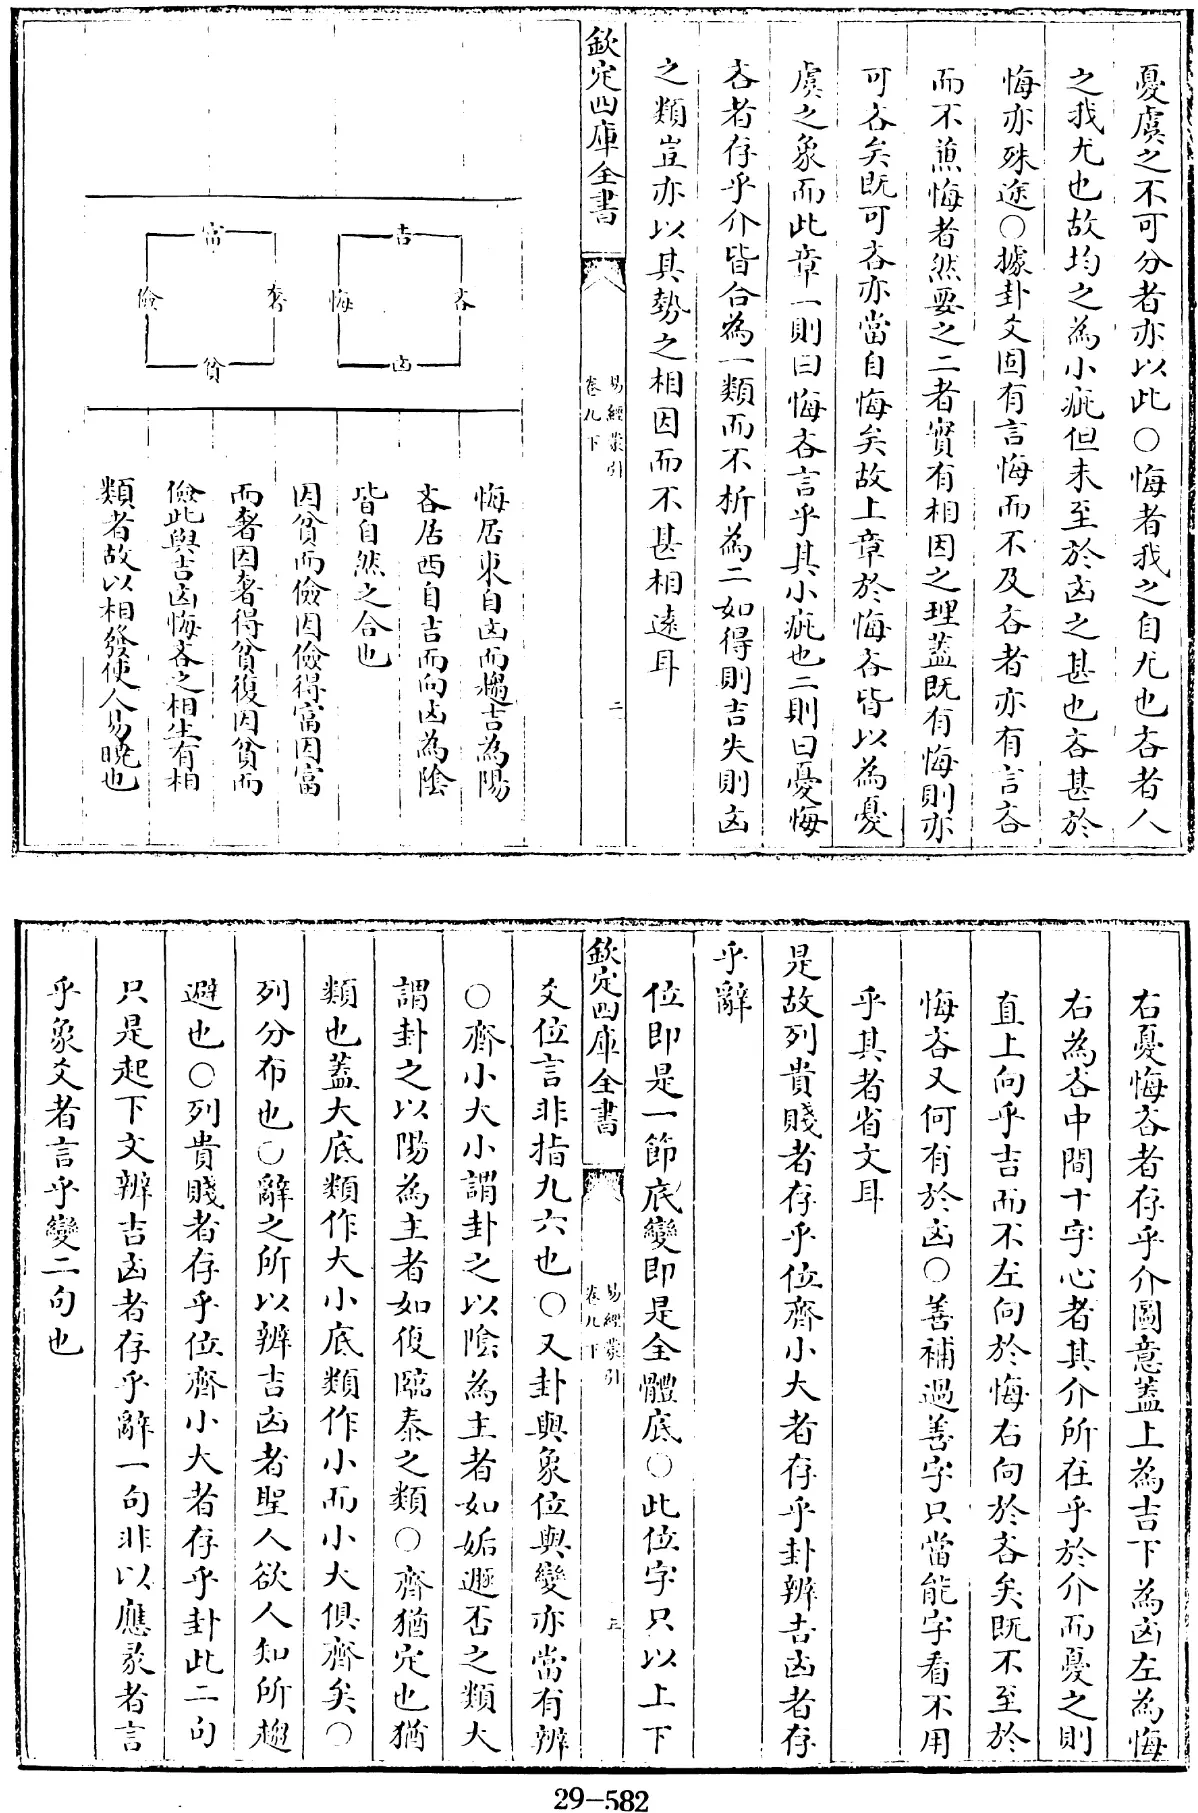 憂虞之不可分者亦以此○悔者我之自尤也吝者人
之我尤也故均之為小疵但未至於凶之甚也吝甚於
悔亦殊途○據卦爻固有言悔而不及吝者亦有言吝
而不兼悔者然要之二者實有相因之理蓋既有悔則亦
可吝矣既可吝亦當自悔矣故上章於悔吝皆以為憂
虞之象而此章一則曰悔吝言乎其小疵也二則曰憂悔
吝者存乎介皆合為一類而不析為二如得則吉失則凶
之類豈亦以其勢之相因而不甚相遠耳
欽定四庫全書
易經蒙引
卷九下
二
吉
吝
悔
凶
富
奢
儉
貧
悔居東自凶而趨吉為陽
吝居西自吉而向凶為陰
皆自然之合也
因貧而儉因儉得富因富
而奢因奢得貧復因貧而
儉此與吉凶悔吝之相生有相
類者故以相發使人易曉也
右憂悔吝者存乎介圖意蓋上為吉下為凶左為悔
右為吝中間十字心者其介所在乎於介而憂之則
直上向乎吉而不左向於悔右向於吝矣既不至於
悔吝又何有於凶○善補過善字只當能字看不用
乎其者省文耳
是故列貴賤者存乎位齊小大者存乎卦辨吉凶者存
乎辭
位即是一節底變即是全體底○此位字只以上下
欽定四庫全書
易經蒙引
卷九下
三
爻位言非指九六也○又卦與象位與變亦當有辨
○齊小大小謂卦之以陰為主者如姤遯否之類大
謂卦之以陽為主者如復臨泰之類○齊猶定也猶
類也蓋大底類作大小底類作小而小大俱齊矣○
列分布也○辭之所以辨吉凶者聖人欲人知所趨
避也○列貴賤者存乎位齊小大者存乎卦此二句
只是起下文辨吉凶者存乎辭一句非以應彖者言
乎象爻者言乎變二句也
29-582